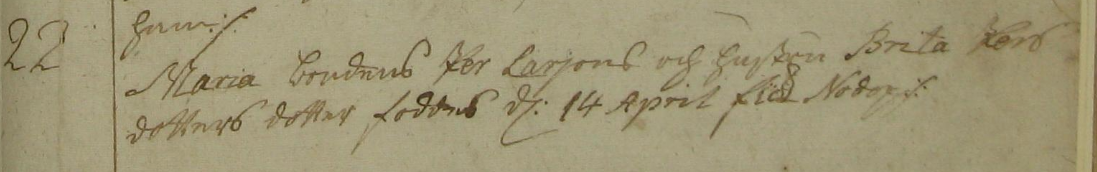 22
hem:/:
Maria bondens Per Larsons och hustrun Brita Pers
dotters dotter foddes d: 14 April fick Nodop /: